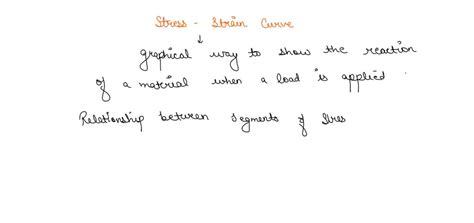 Stress - Strain Curve
↓
graphical way to show the reaction
of a material when a load is applied.
Relationship between segments of Stres